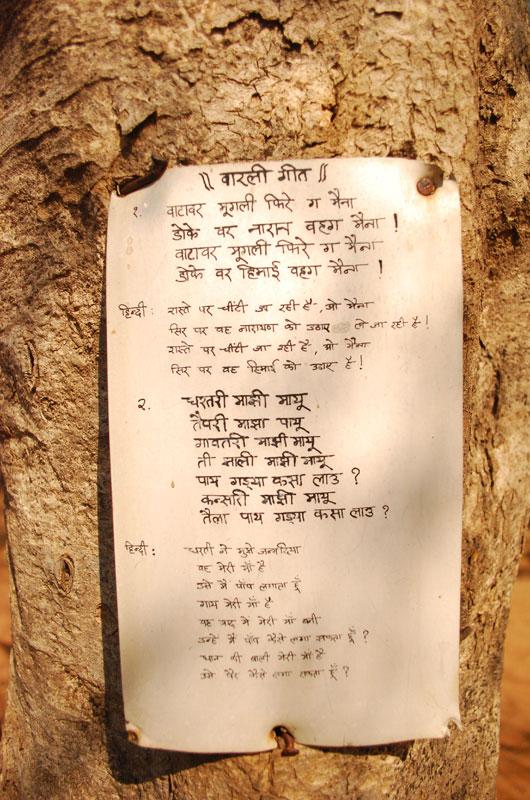 ॥ वारली गीत ॥
१. वाटावर मूगली फिरे ग मैना
डोके वर नारान वहग मैना !
वाटावर मूगली फिरे ग मैना
डोके वर हिमाई वहग मैना !
हिन्दी : रास्ते पर चींटी जा रही है, ओ मैना
सिर पर वह नारायण को उठाए ले जा रही है !
रास्ते पर चींटी जा रही है, ओ मैना
सिर पर वह हिमाई को उठाए है !
२. धरतरी माझी मायू
माझा पायू
गावतरी माझी मायू
ती साली माझी मायू
पाय गड्या कसा लाउ ?
कन्सारी माझी मायू
तैला पाय गड्या कसा लाउ ?
हिन्दी : धरती ने मुझे जन्म दिया
वह मेरी माँ है
उसे मैं पाँव लगाता हूँ
गाय मेरी माँ है
मेरी माँ बनी
उन्हें मैं पाँव कैसे लगा सकता हूँ ?
धान की बाली मेरी माँ है
उसे पैर कैसे लगा सकता हूँ ?